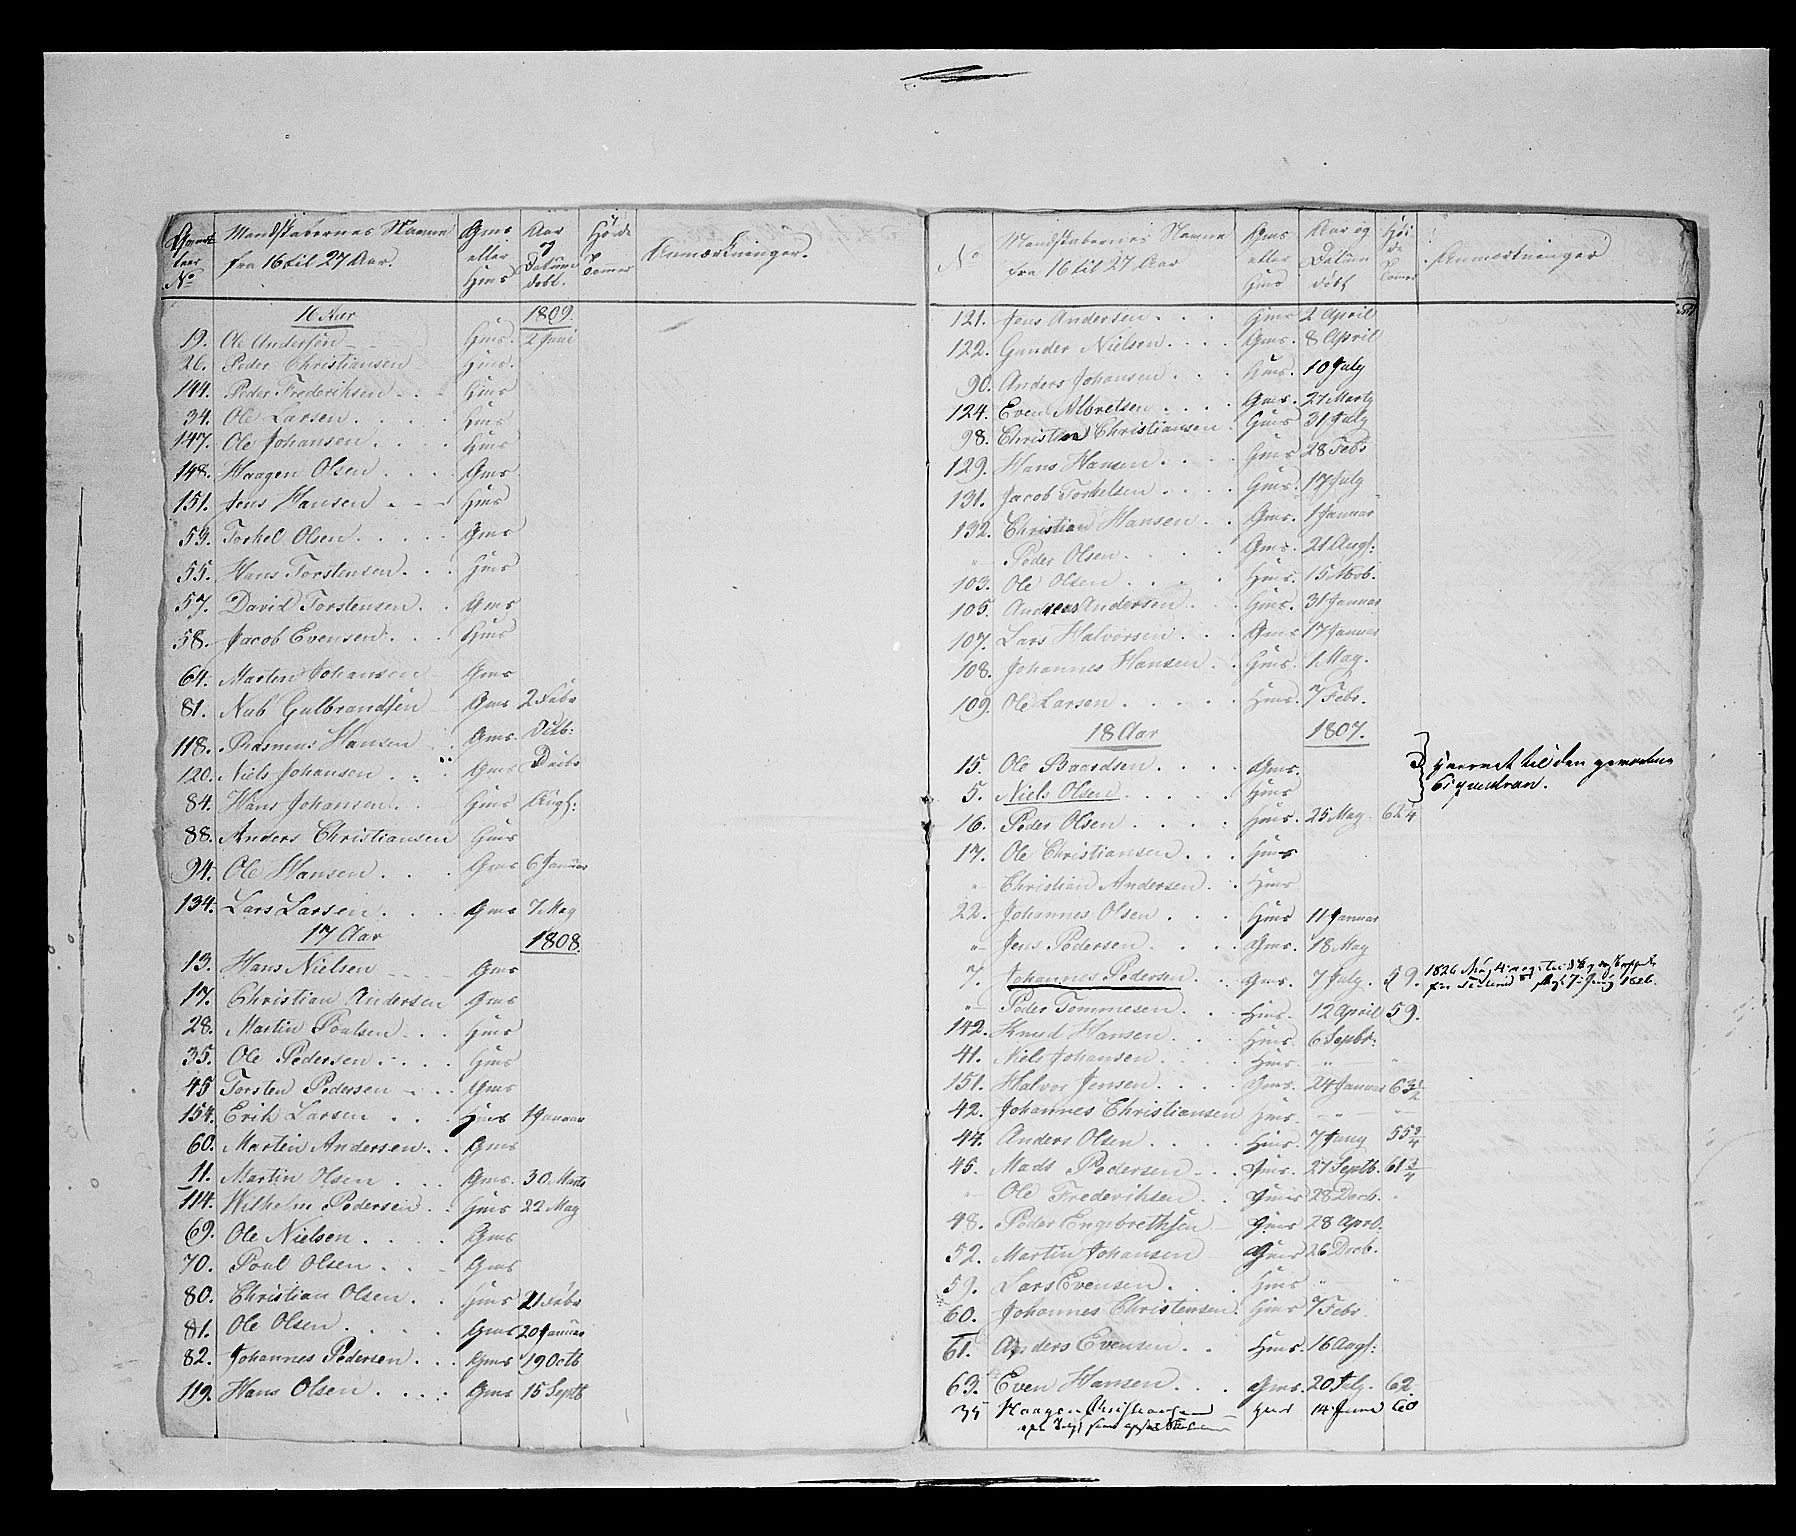 Mandskabernes Navne
fra 16 til 27 Aar.
Gms
eller
Hms
Aar
og
Datum
født.
Høide
Tommer
Anmærkninger.
16 Aar 1809.
19. Ole Andersen Hms. 2 Juni
26. Peder Christiansen Hms.
144. Peder Frederiksen Hms
34. Ole Larsen Hms
147. Ole Johansen Hms
148. Haagen Olsen Gms.
151. Jens Hansen Hms
53. Torkel Olsen Gms
55. Hans Torstensen Hms
57. David Torstensen Gms
58. Jacob Evensen Hms
64. Martin Johansen Gms
81. Nub Gulbrandsen Gms 2 Febr
118. Rasmus Hansen Gms.
120. Niels Johansen Gms
84. Hans Johansen Hms Augs:
88. Anders Christiansen Hms
94. Ole Hansen Gms 6 Januar
134. Lars Larsen Gms 7 May
17 Aar 1808.
13. Hans Nielsen Gms
17. Christian Andersen Gms
28. Martin Poulsen Hms
35. Ole Pedersen Hms
45 Torsten Pedersen Gms
154. Erik Larsen Hms 1 Januar
60. Martin Andersen Gms
11. Martin Olsen Gms. 30 Marts
114. Wilhelm Pedersen Hms 22 May
69. Ole Nielsen Gms
70. Poul Olsen Gms
80. Christian Olsen Hms 21 Febr
81. Ole Olsen Gms 20 Januar
82. Johannes Pedersen Gms 19 Octb
119. Hans Olsen Gms 15 Septb
No
Mandskabernes Navne
fra 16 til 27 Aar
Gms
eller
Hms
Aar og
Datum
født
Høi
de
Tommer
Anmærkninger
121. Jens Andersen Hms 2 April
122. Gunder Nielsen Gms. 8 April
90. Anders Johansen Hms. 10 July
124. Even Albretsen Gms. 27 Marty
98. Christian Christiansen Hms 31 July
129. Hans Hansen Hms 28 Febr
131. Jacob Torkelsen Gms. 17 July
132. Christian Hansen Gms. 1 Januar
" Peder Olsen Gms. 21 Augs:
103. Ole Olsen Hms. 15 Novb.
105. Andreas Andersen Hms. 31 Januar
107. Lars Halvorsen Gms 17 Januar
108. Johannes Hansen Hms. 1. May.
109. Ole Larsen Hms. 7 Febr.
18 Aar 1807.
15. Ole Baardsen Gms.
5. Niels Olsen Hms
til den
16. Peder Olsen Hms. 25 May. 62 1/4
17. Ole Christiansen Hms
" Christian Andersen Hms
22. Johannes Olsen Hms 11 Januar
" Jens Pedersen Gms. 18 May
7. Johannes Pedersen Gms. 7 July. 59.
" Peder Tommesen Hms. 12 April 59.
142. Knud Hansen Hms. 6 Septbr:
41. Niels Johansen Hms. "
151. Halvor Jensen Gms. 24 Januar 63 1/2
42. Johannes Christiansen Hms.
44. Anders Olsen Hms. 7 Juny 55 3/4
45. Mads Pedersen Gms. 27 Septb. 61 3/4
" Ole Frederiksen Hms 28 Decb.
48. Peder Engebrethsen Gms 28 April.
52. Martin Johansen Gms 26 Decb.
59. Lars Evensen Hms "
60. Johannes Christensen Hms 7 Febr.
61. Anders Evensen Hms. 16 Augs:
63. Even Hansen Gms. 20 July. 62.
35 Haagen Christiansen Hms 14 Juni 60